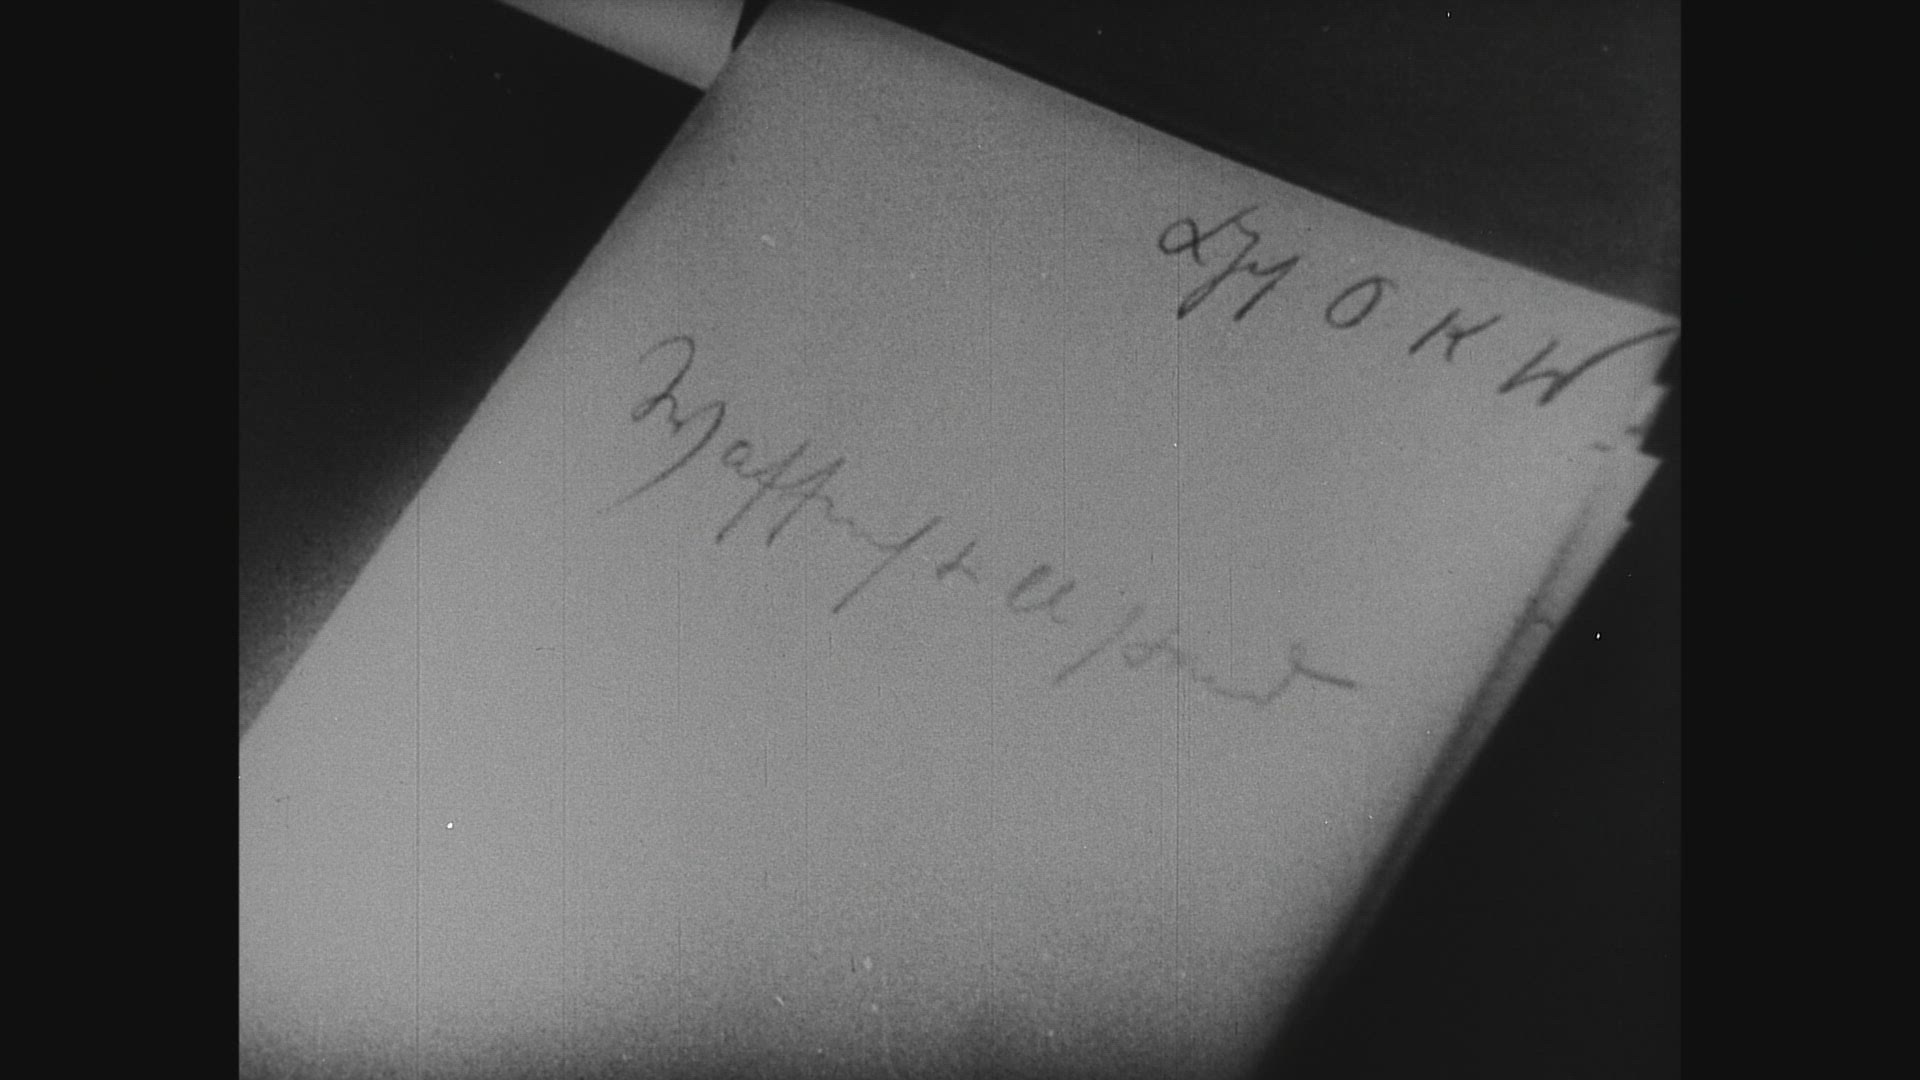 Chef O K W
Waffenstillstand